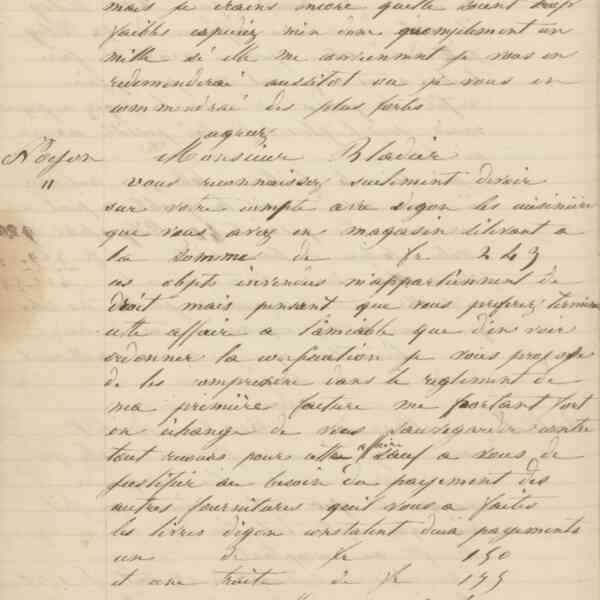 mais je crains encore quelle soient trop
faibles expediez m'en donc promptement un
mille si elle me conviennent je vous en
redemanderai aussitot ou je vous en
commanderai des plus fortes
agreez
Noyon Monsieur Bladier
" vous reconnaissez seulement devoir
sur votre compte avec digon les cuisinieres
que vous avez en magasin s'élevant a
la somme de fr 243
ces objets invendus m'appartiennent de
droit mais pensant que vous preferez terminer
cette affaire a l'amiable que d'en voir
ordonner la confiscation je vous propose
de les comprendre dans le reglement de
ma première facture me portant fort
en échange de vous sauvegarder contre
tout recours pour cette affaire sauf a vous de
justifier au besoin du payement des
autres fournitures qu'il vous a faites
les livres digon constatent deux payements
un de fr 150
et une traite de fr 175